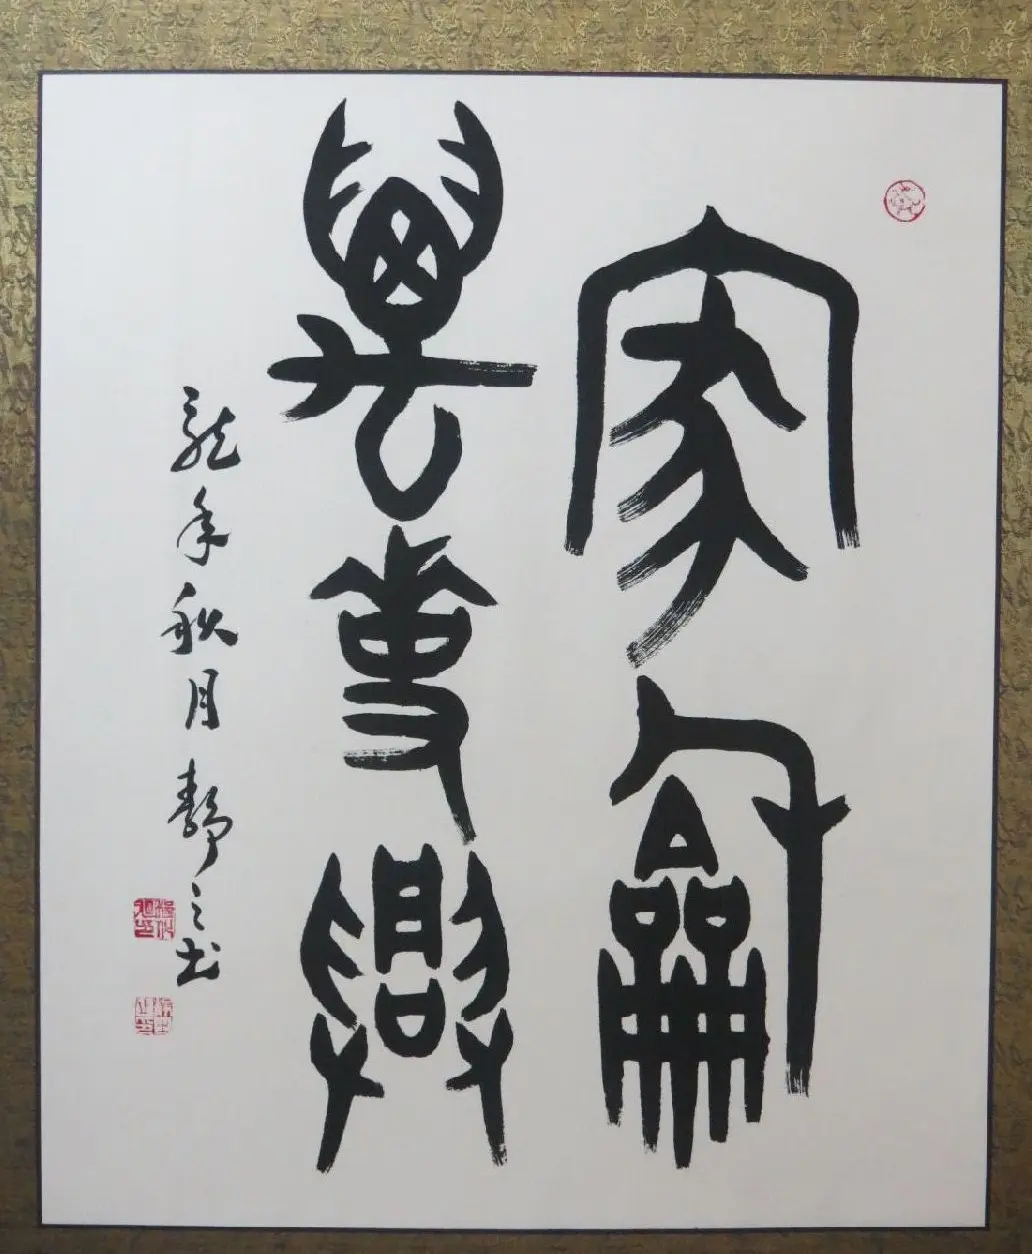 家龢
萬事興
龍年秋月靜之书